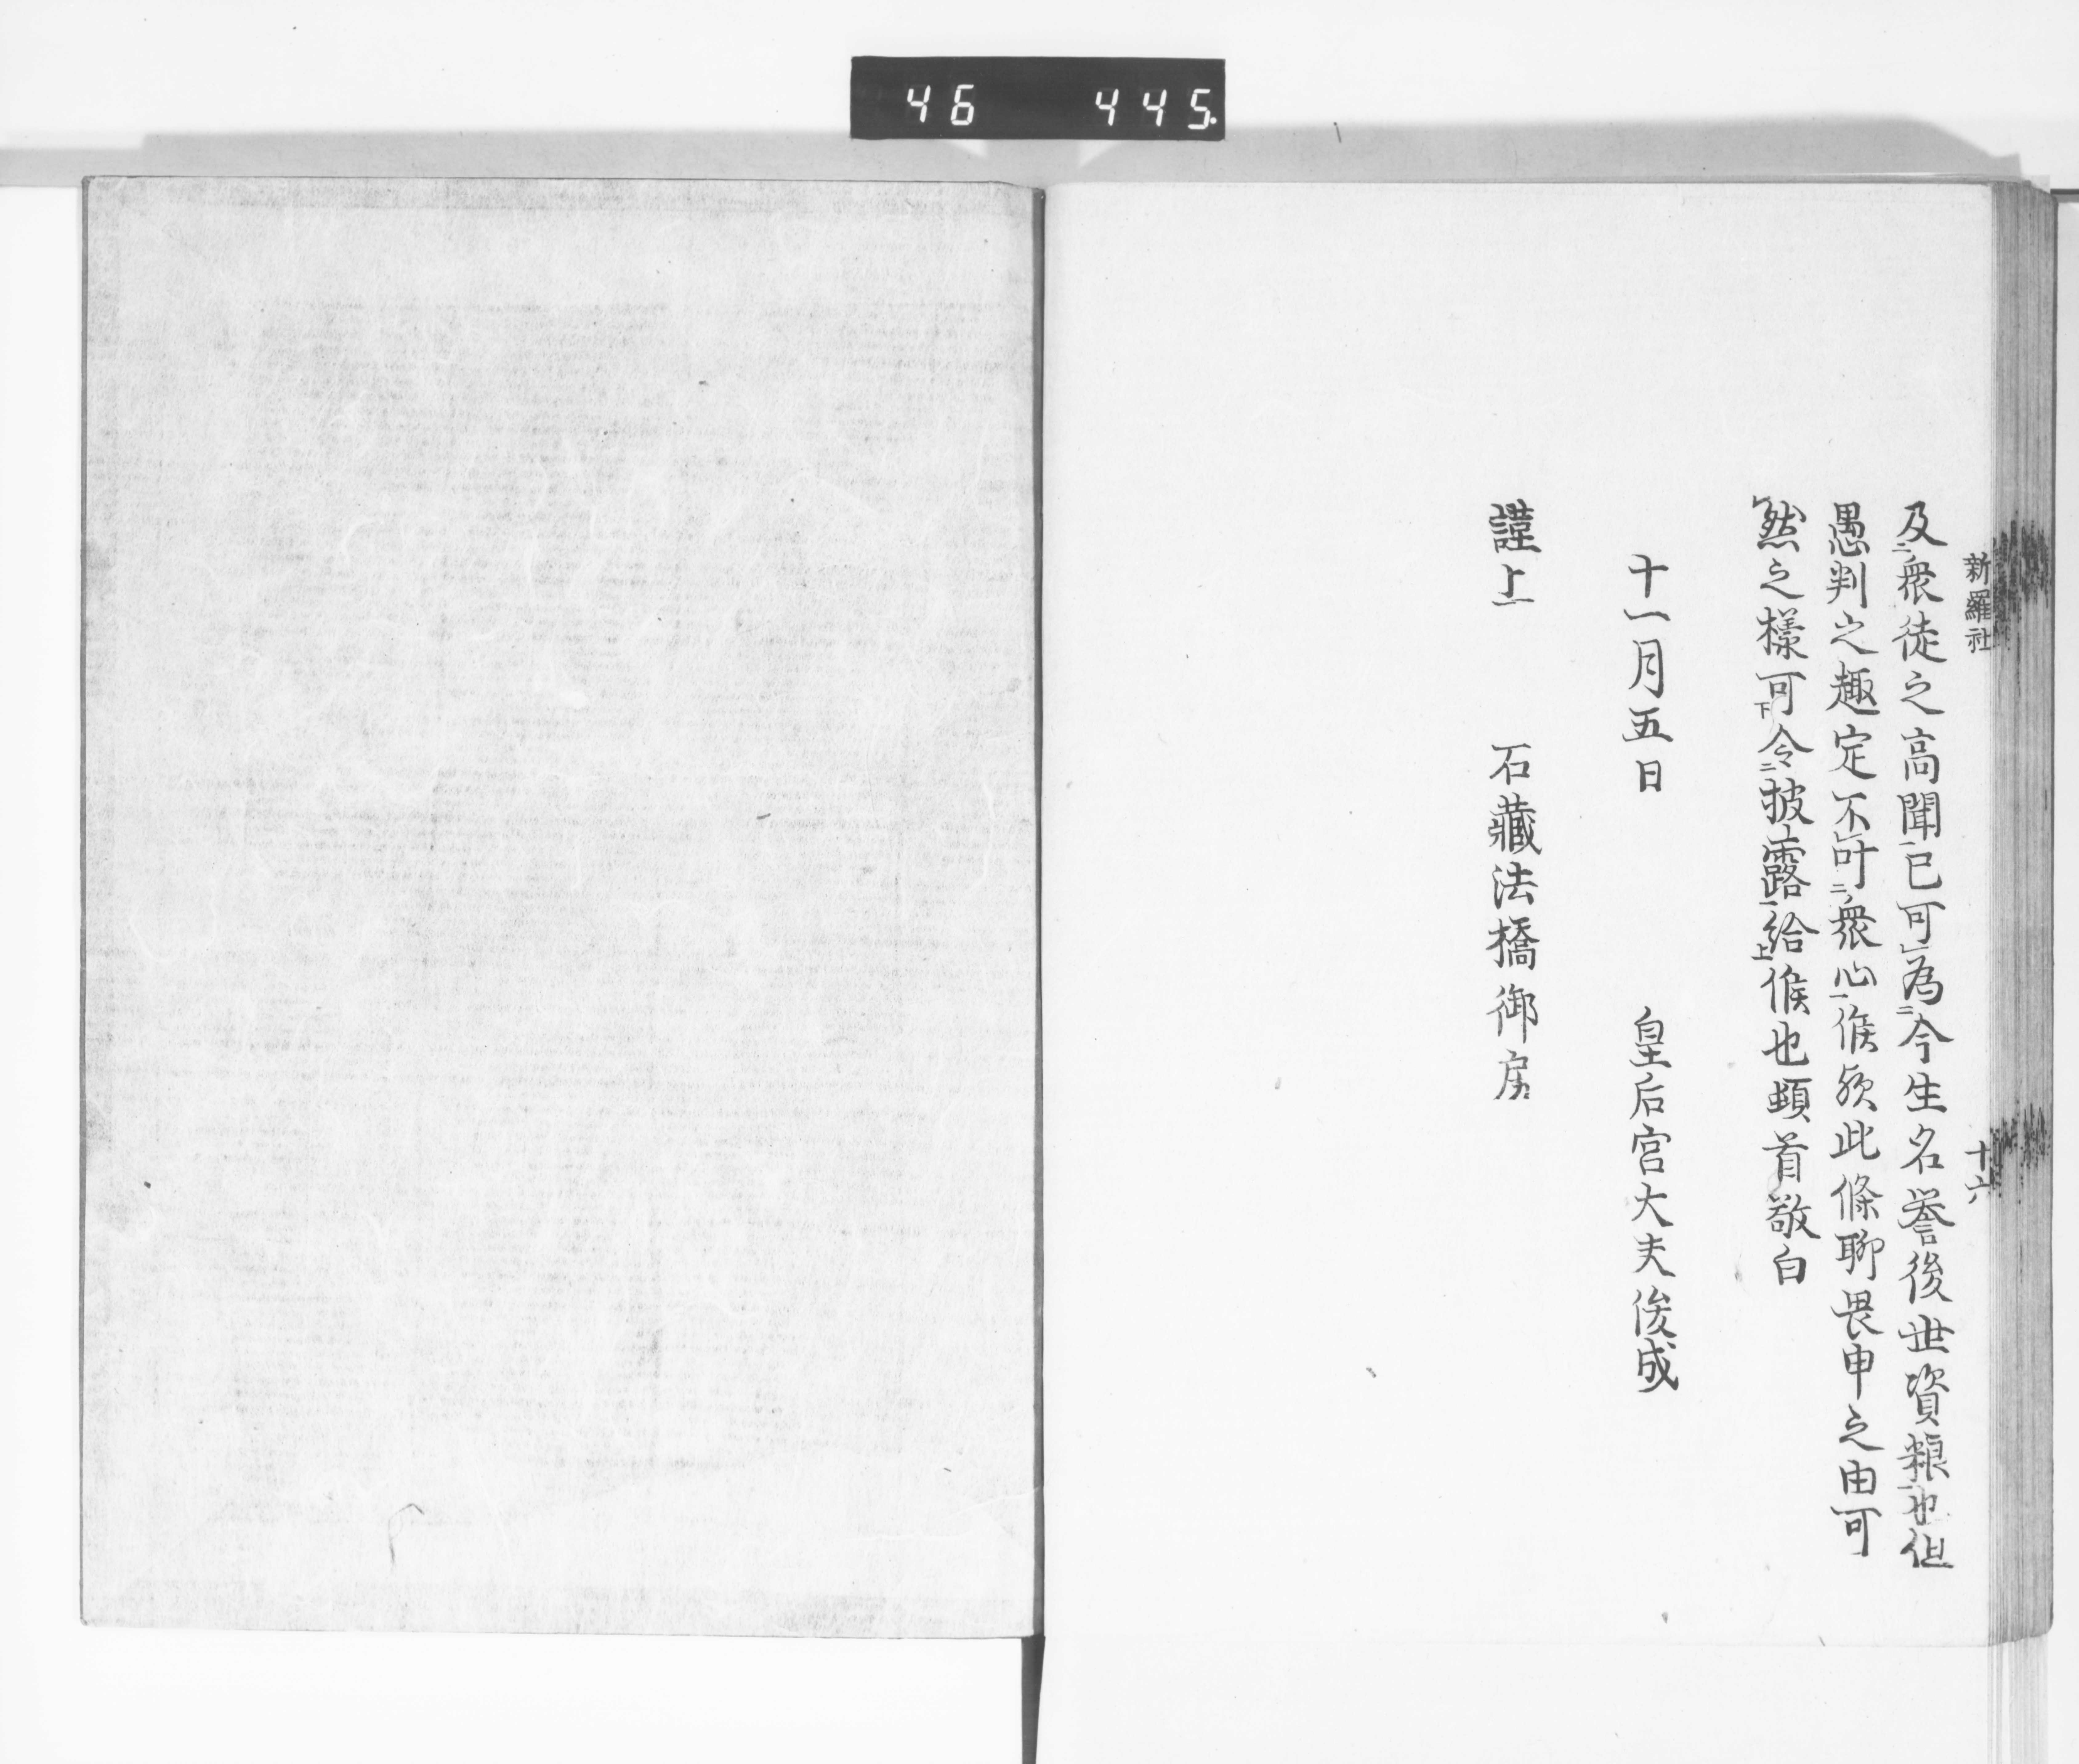 46 445
新羅社 十六
及二衆徒之高聞一已可レ為二今生名誉後世資粮一也但
愚判之趣定不レ叶二衆心一候歟此條聊畏申之由可レ
然之様可下令二披露一給上候也頓首敬白
十一月五日 皇后宮大夫俊成
謹上 石藏法橋御房